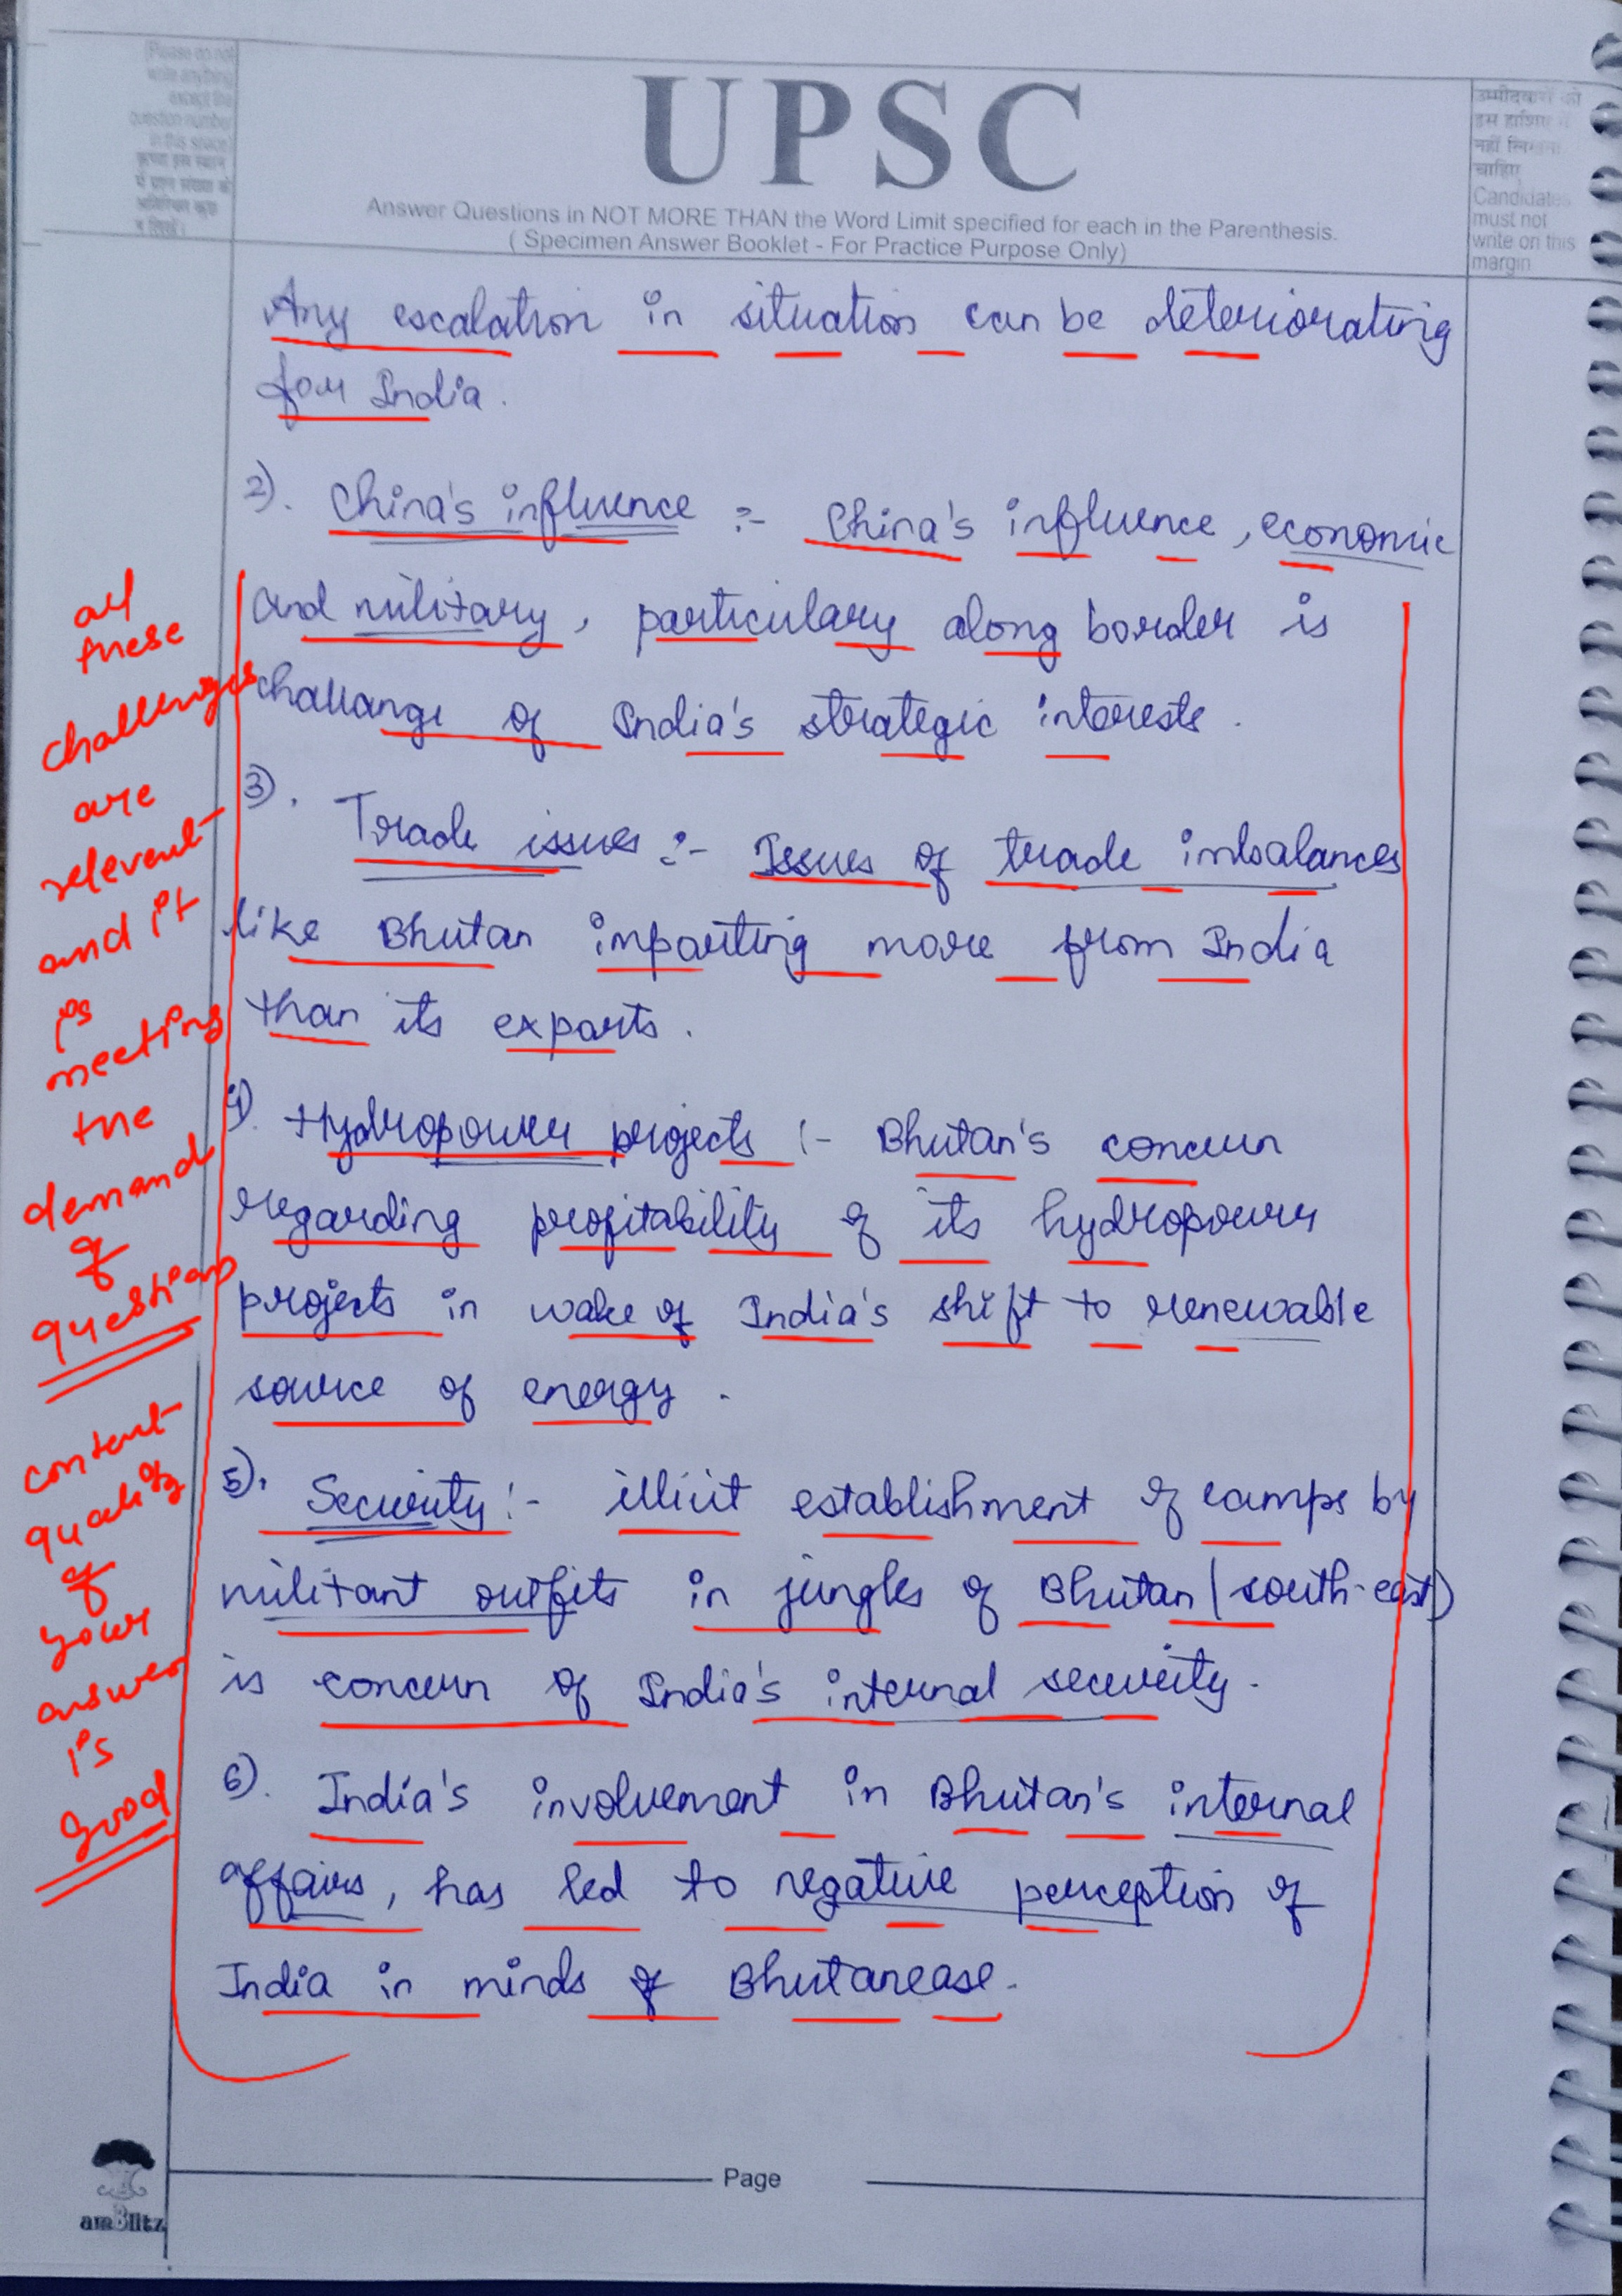 (Please do not
write anything
except the
question number
in this space)
कृपया इस स्थान
में प्रश्न संख्या के
अतिरिक्त कुछ
न लिखें।
UPSC
Answer Questions in NOT MORE THAN the Word Limit specified for each in the Parenthesis.
( Specimen Answer Booklet - For Practice Purpose Only)
उम्मीदवारों को
इस हाशिए में
नहीं लिखना
चाहिए
Candidates
must not
write on this
margin
Any escalation in situation can be deteriorating
for India.
2). China's influence :- China's influence, economic
and military, particulary along border is
challange of India's strategic interests.
3). Trade issues :- Issues of trade imbalances
like Bhutan importing more from India
than its exports.
4). Hydropower projects :- Bhutan's concern
regarding profitability of its hydropower
projects in wake of India's shift to renewable
source of energy.
5). Security :- illicit establishment of camps by
militant outfits in jungles of Bhutan (south-east)
is concern of India's internal security.
6). India's involvement in Bhutan's internal
affairs, has led to negative perception of
India in minds of Bhutanease.
all
these
challenges
are
relevent
and it
is
meeting
the
demand
of
question
content
quality
of
your
answer
is
good
am3litz
Page